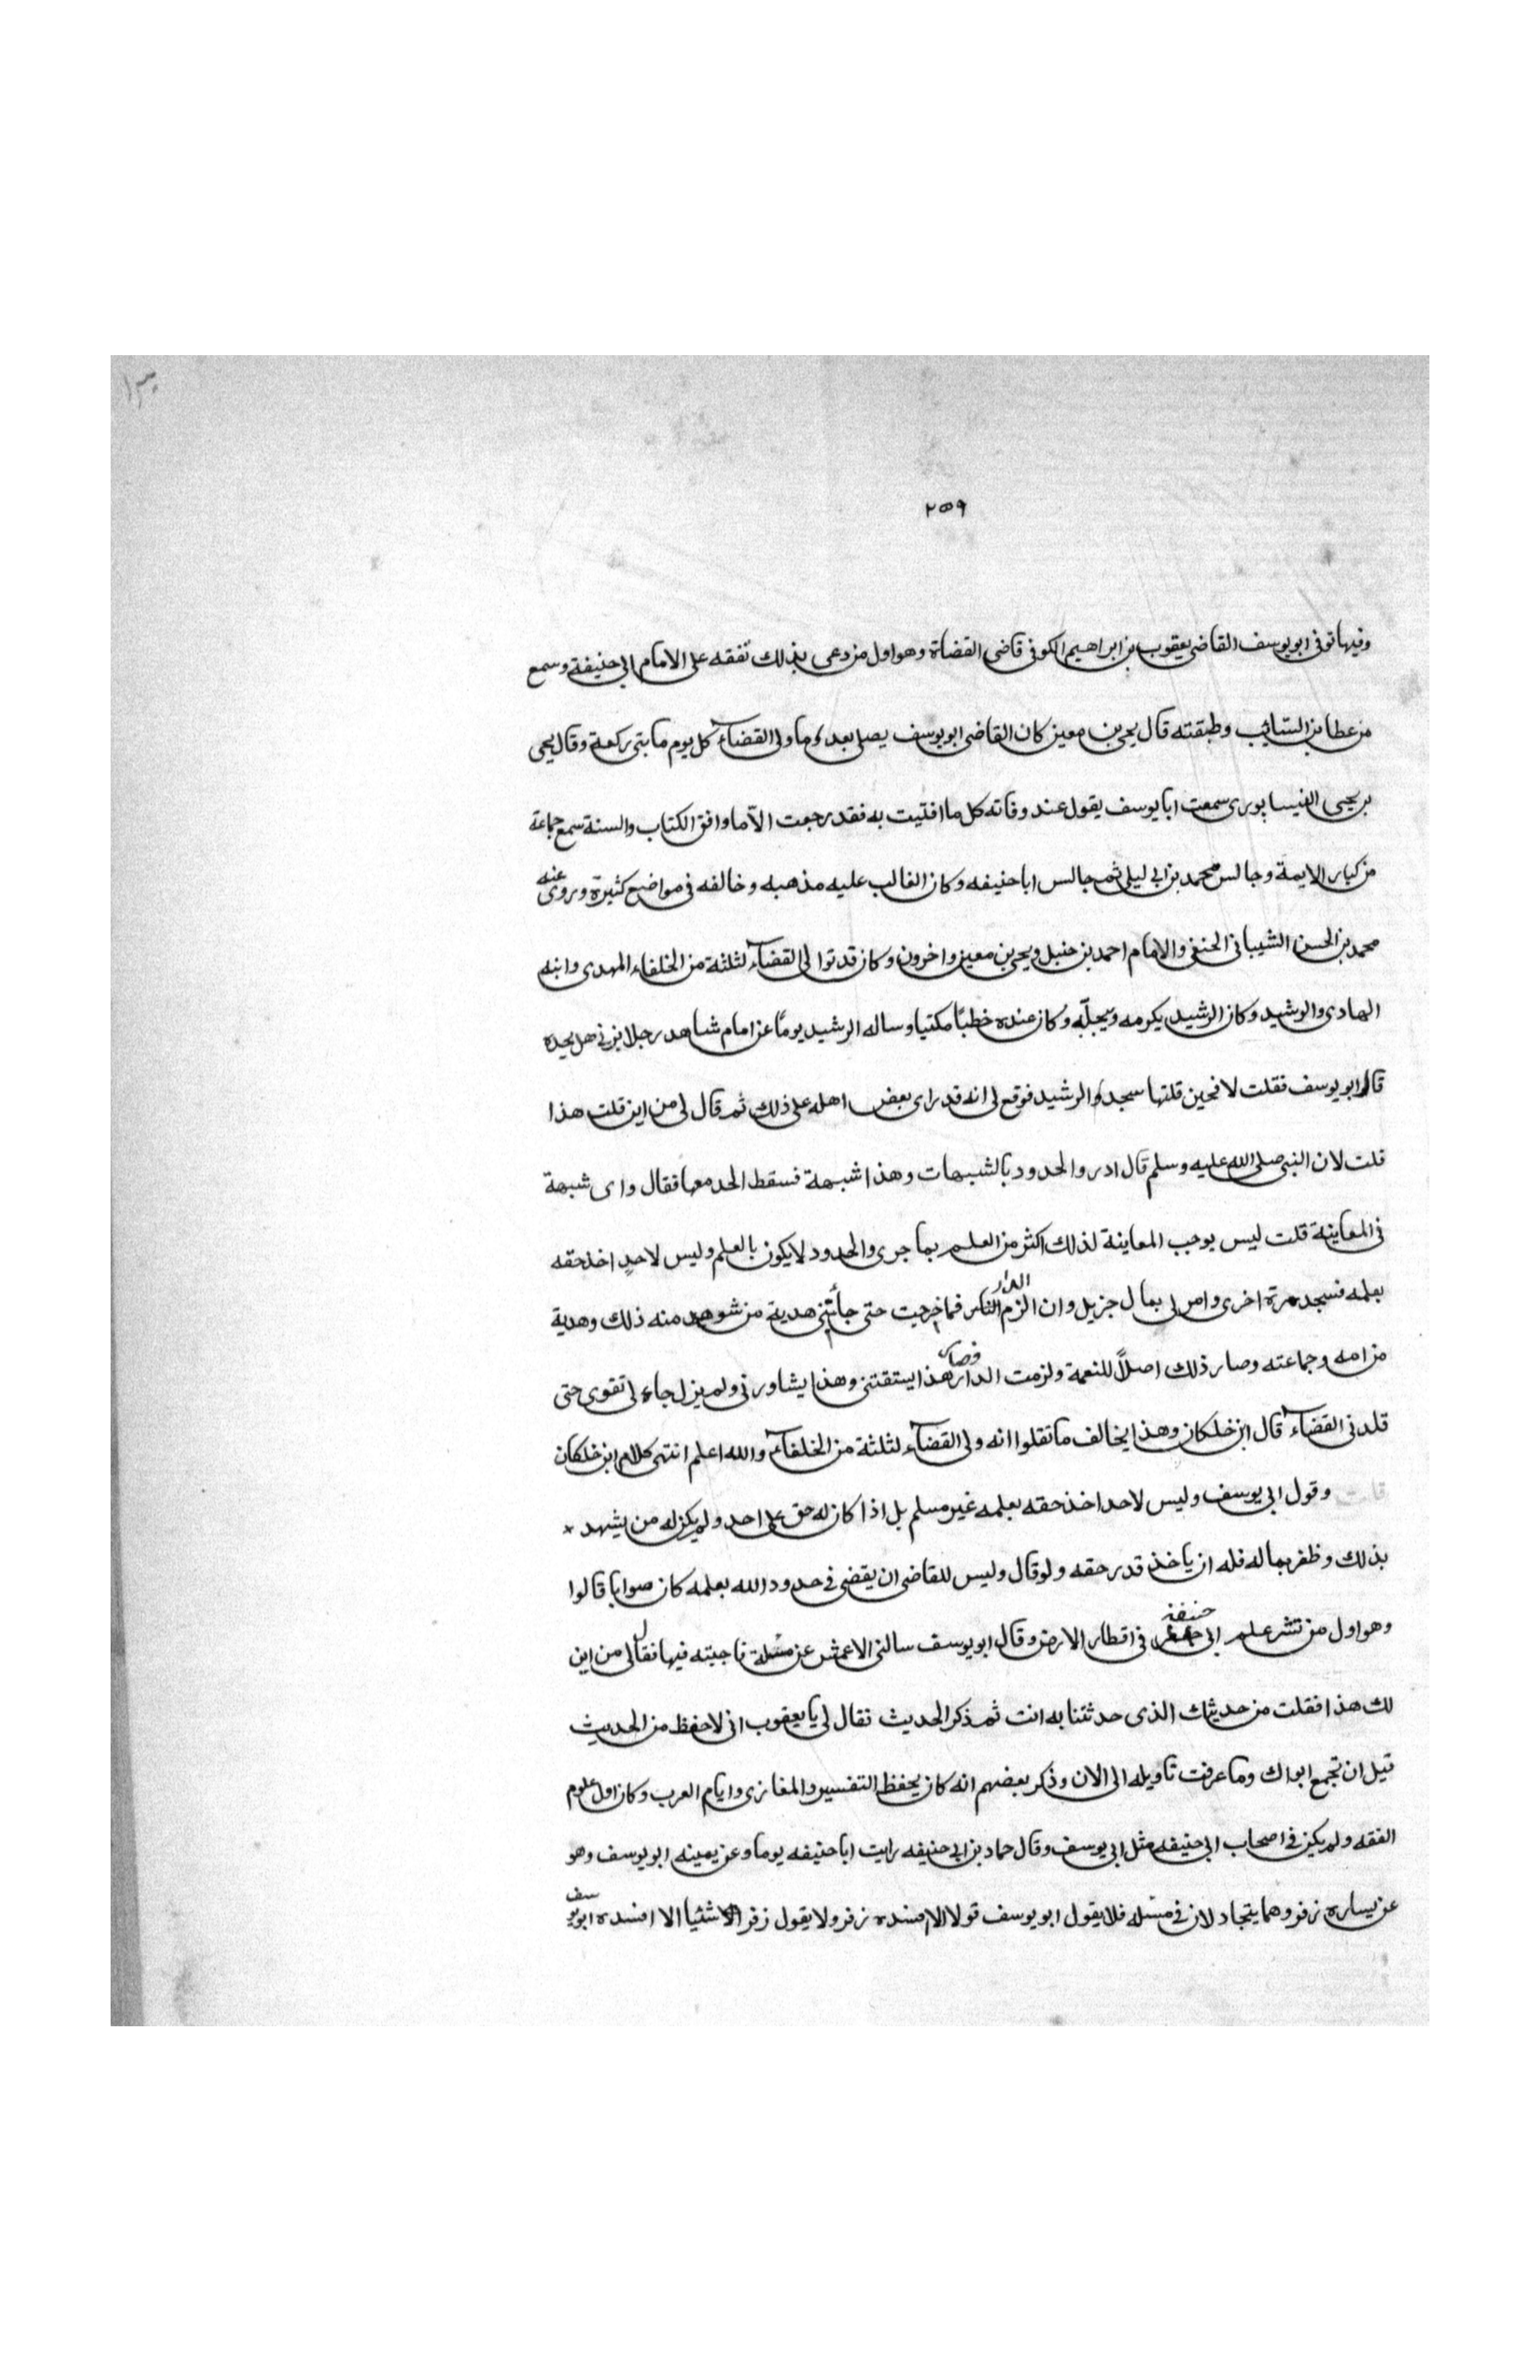 ١٣٠
٢٥٩
وفيها توفى ابو يوسف القاضى يعقوب بن ابراهيم الكوفى قاضى القضاة وهو اول من دعى بذلك تفقه على الامام ابى حنيفة وسمع
من عطا بن السائب وطبقته قال يحيى بن معين كان القاضى ابو يوسف يصلى بعد ما ولى القضاء كل يوم مايتى ركعة وقال يحيى
بن يحيى النيسابورى سمعت ابا يوسف يقول عند وفاته كل ما افتيت به فقد رجعت الا ما وافق الكتاب والسنة سمع جماعة
من كبار الايمة وجالس محمد بن ابى ليلى ثم جالس ابا حنيفه وكان الغالب عليه مذهبه وخالفه فى مواضع كثيرة وروى عنه
محمد بن الحسن الشيبانى الحنفى والامام احمد بن حنبل ويحيى بن معين واخرون وكان قد تولى القضاء لثلثة من الخلفاء المهدى وابنه
الهادى والرشيد وكان الرشيد يكرمه ويجلّه وكان عنده خطيًا مكتيا وساله الرشيد يومًا عن امام شاهد رجلا يزنى هل يحده
قال ابو يوسف فقلت لا فحين قلتها سجد الرشيد فوقع لى انه قد راى بعض اهله على ذلك ثم قال لى من اين قلت هذا
قلت لان النبى صلى الله عليه وسلم قال ادروا الحدود بالشبهات وهذا شبهة فسقط الحد معها فقال واى شبهة
فى المعاينة قلت ليس يوجب المعاينة لذلك اكثر من العلم بما جرى والحدود لا يكون بالعلم وليس لاحدٍ اخذ حقه
بعلمه فسجد مرة اخرى وامر لى بمال جزيل وان الزم الدار فما خرجت حتى جأتنى هدية من شوهد منه ذلك وهدية
من امه وجماعته وصار ذلك اصلاً للنعمة ولزمت الدار فصار هذا يستفتنى وهذا يشاورنى ولم يزل جاء لى تقوى حتى
قلدنى القضاء قال ابن خلكان وهذا يخالف ما نقلوا انه ولى القضاء لثلثة من الخلفاء والله اعلم انتهى كلام ابن خلكان
قلت وقول ابى يوسف وليس لاحد اخذ حقه بعلمه غير مسلم بل اذا كان له حق على احد ولم يكن له من يشهد
بذلك وظفر بماله فله ان ياخذ قدر حقه ولو قال وليس للقاضى ان يقضى فى حدود الله بعلمه كان صوابا قالوا
وهو اول من نشر علم ابى حنيفة فى اقطار الارض وقال ابو يوسف سالنى الاعمش عن مسئلة فاجبته فيها فقال لى من اين
لك هذا فقلت من حديثك الذى حدثتنا به انت ثم ذكر الحديث فقال لى يا يعقوب انى لاحفظ من الحديث
قبل ان تجمع ابواك وما عرفت تاويله الى الان وذكر بعضهم انه كان يحفظ التفسير والمغازى وايام العرب وكان اول علوم
الفقه ولم يكن فى اصحاب ابى حنيفه مثل ابى يوسف وقال حماد بن ابى حنيفه رايت ابا حنيفه يوما وعن يمينه ابو يوسف وهو
عن يساره زفر وهما يتجادلان فى مسئله فلا يقول ابو يوسف قولا الا افسده زفر ولا يقول زفر شئيا الا افسده ابو يوسف